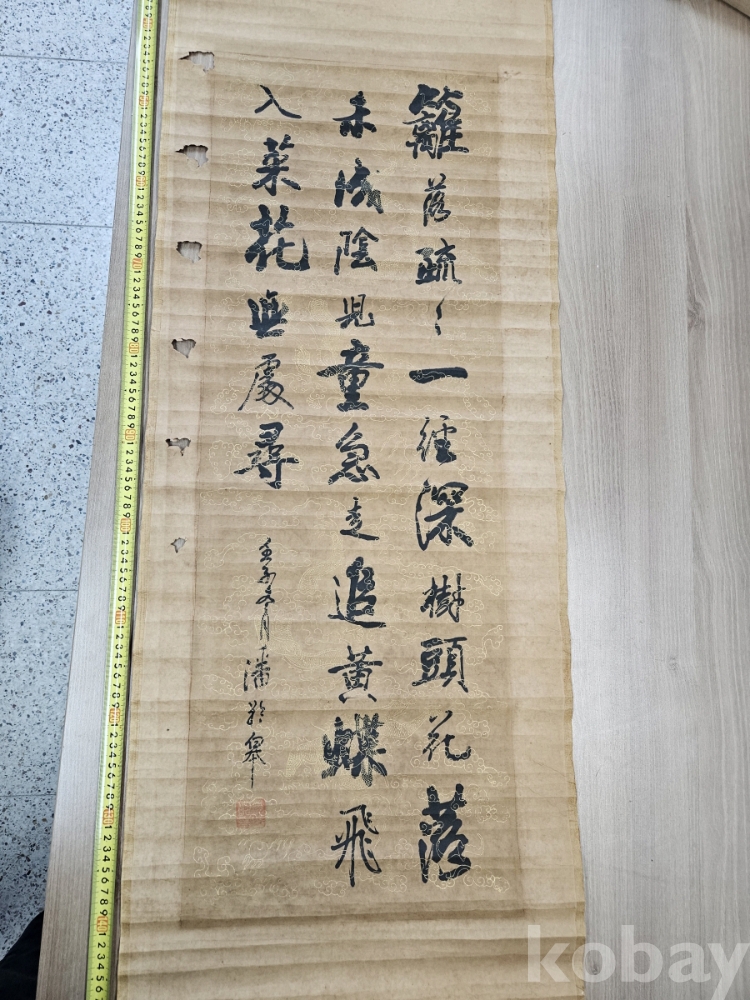 籬落疏〻一徑深樹頭花落
未成陰兒童急走追黃蝶飛
入菜花無處尋
壬子冬月 潘齡皋
kobay